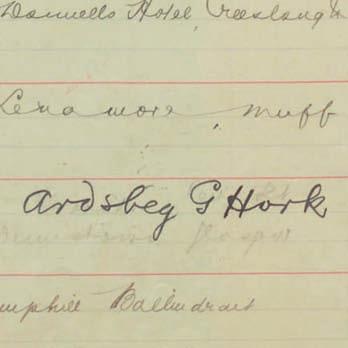 Daniells Hotel, Creeslough
Lenamore, Muff
Ardsbeg G Hork
mphill Ballindrait